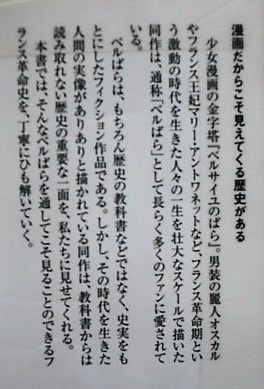 漫画だからこそ見えてくる歴史がある
少女漫画の金字塔『ベルサイユのばら』。男装の麗人オスカル
やフランス王妃マリー・アントワネットなど、フランス革命期とい
う激動の時代を生きた人々の一生を壮大なスケールで描いた
同作は、通称「ベルばら」として長らく多くのファンに愛されて
いる。
ベルばらは、もちろん歴史の教科書などではなく、史実をも
とにしたフィクション作品である。しかし、その時代を生きた
人間の実像がありありと描かれている同作は、教科書からは
読み取れない歴史の重要な一面を、私たちに見せてくれる。
本書では、そんなベルばらを通してこそ見ることのできるフ
ランス革命史を、丁寧にひも解いていく。